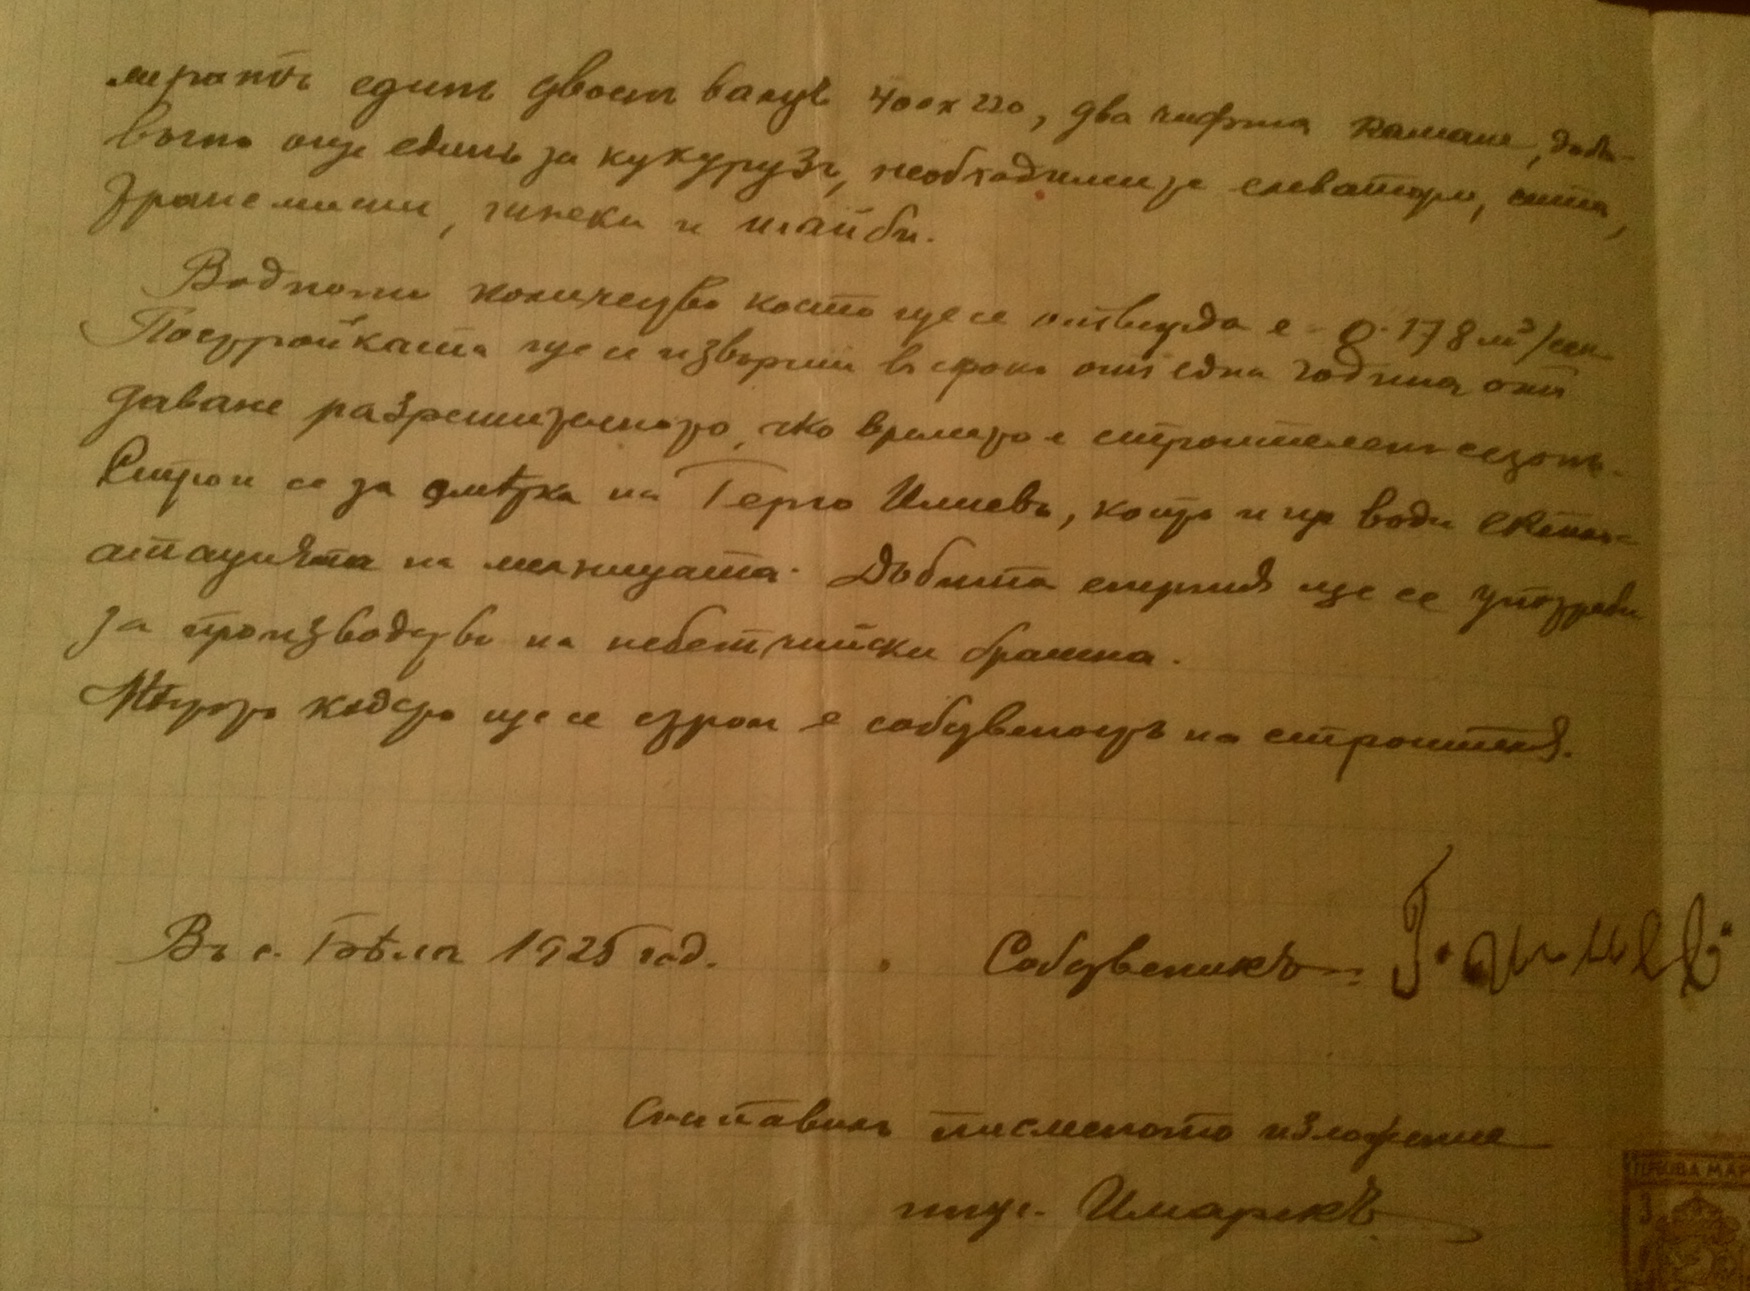 единъ двоенъ валцъ 400х220, два чифта камани, допъ-
още единъ за кукурузъ, необходимия елеватори, сита,
трансмисии, шнекове и шайби.
Водното количество което ще се отвежда е 0.178 м³/сек.
Постройката ще се извърши въ срокъ отъ една година отъ
даване разрешителното, ако времето е строителенъ сезонъ.
Строи се за смѣтка на Герго Илиевъ, който и ще води експло-
атацията на мелницата. Добита енергия ще се употреби
за производство на небетчийски брашна.
Мѣстото кодето ще се строи е собственость на строителя.
Въ с. Бѣла 1925 год. Собственикъ: Г. Илиевъ
Съставилъ писменото изложение